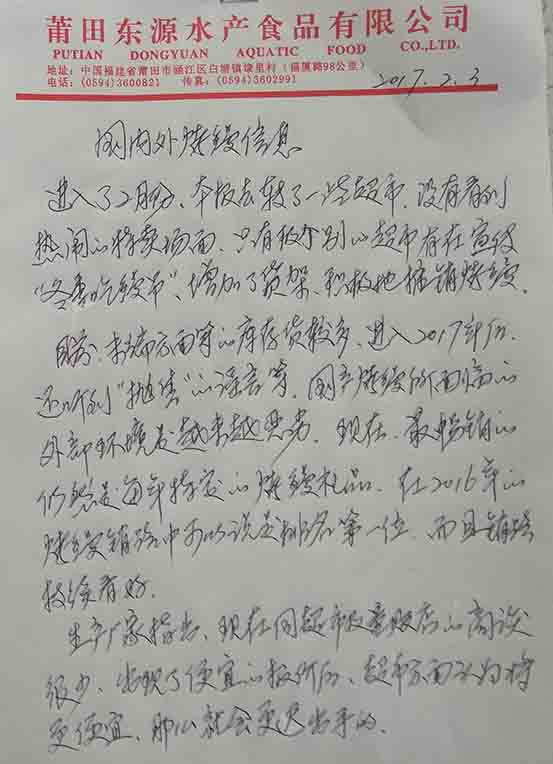 莆田东源水产食品有限公司
PUTIAN DONGYUAN AQUATIC FOOD CO.,LTD.
地址：中国福建省莆田市涵江区白塘镇埭里村（福厦路98公里）
电话：(0594)3600821 传真：(0594)3602991
2017.2.3
国内外烤鳗信息
进入了2月份、本报去转了一些超市、没有看到
热闹的特卖场面、只有极个别的超市有在宣传
“冬季吃鳗节”、增加了货架、积极地推销烤鳗。
目前、末端方面等的库存货较多、进入2017年后、
还听到“抛售”的谣言等、国产烤鳗所面临的
外部环境是越来越恶劣。现在、最畅销的
仍然是每年特定的烤鳗礼品、在2016年的
烤鳗销路中可以说是排名第一位、而且销路
持续看好。
生产厂家指出、现在同超市及量贩店的商谈
很少、出现了便宜的报价后、超市方面认为将
更便宜、那么就会更迟出手的。